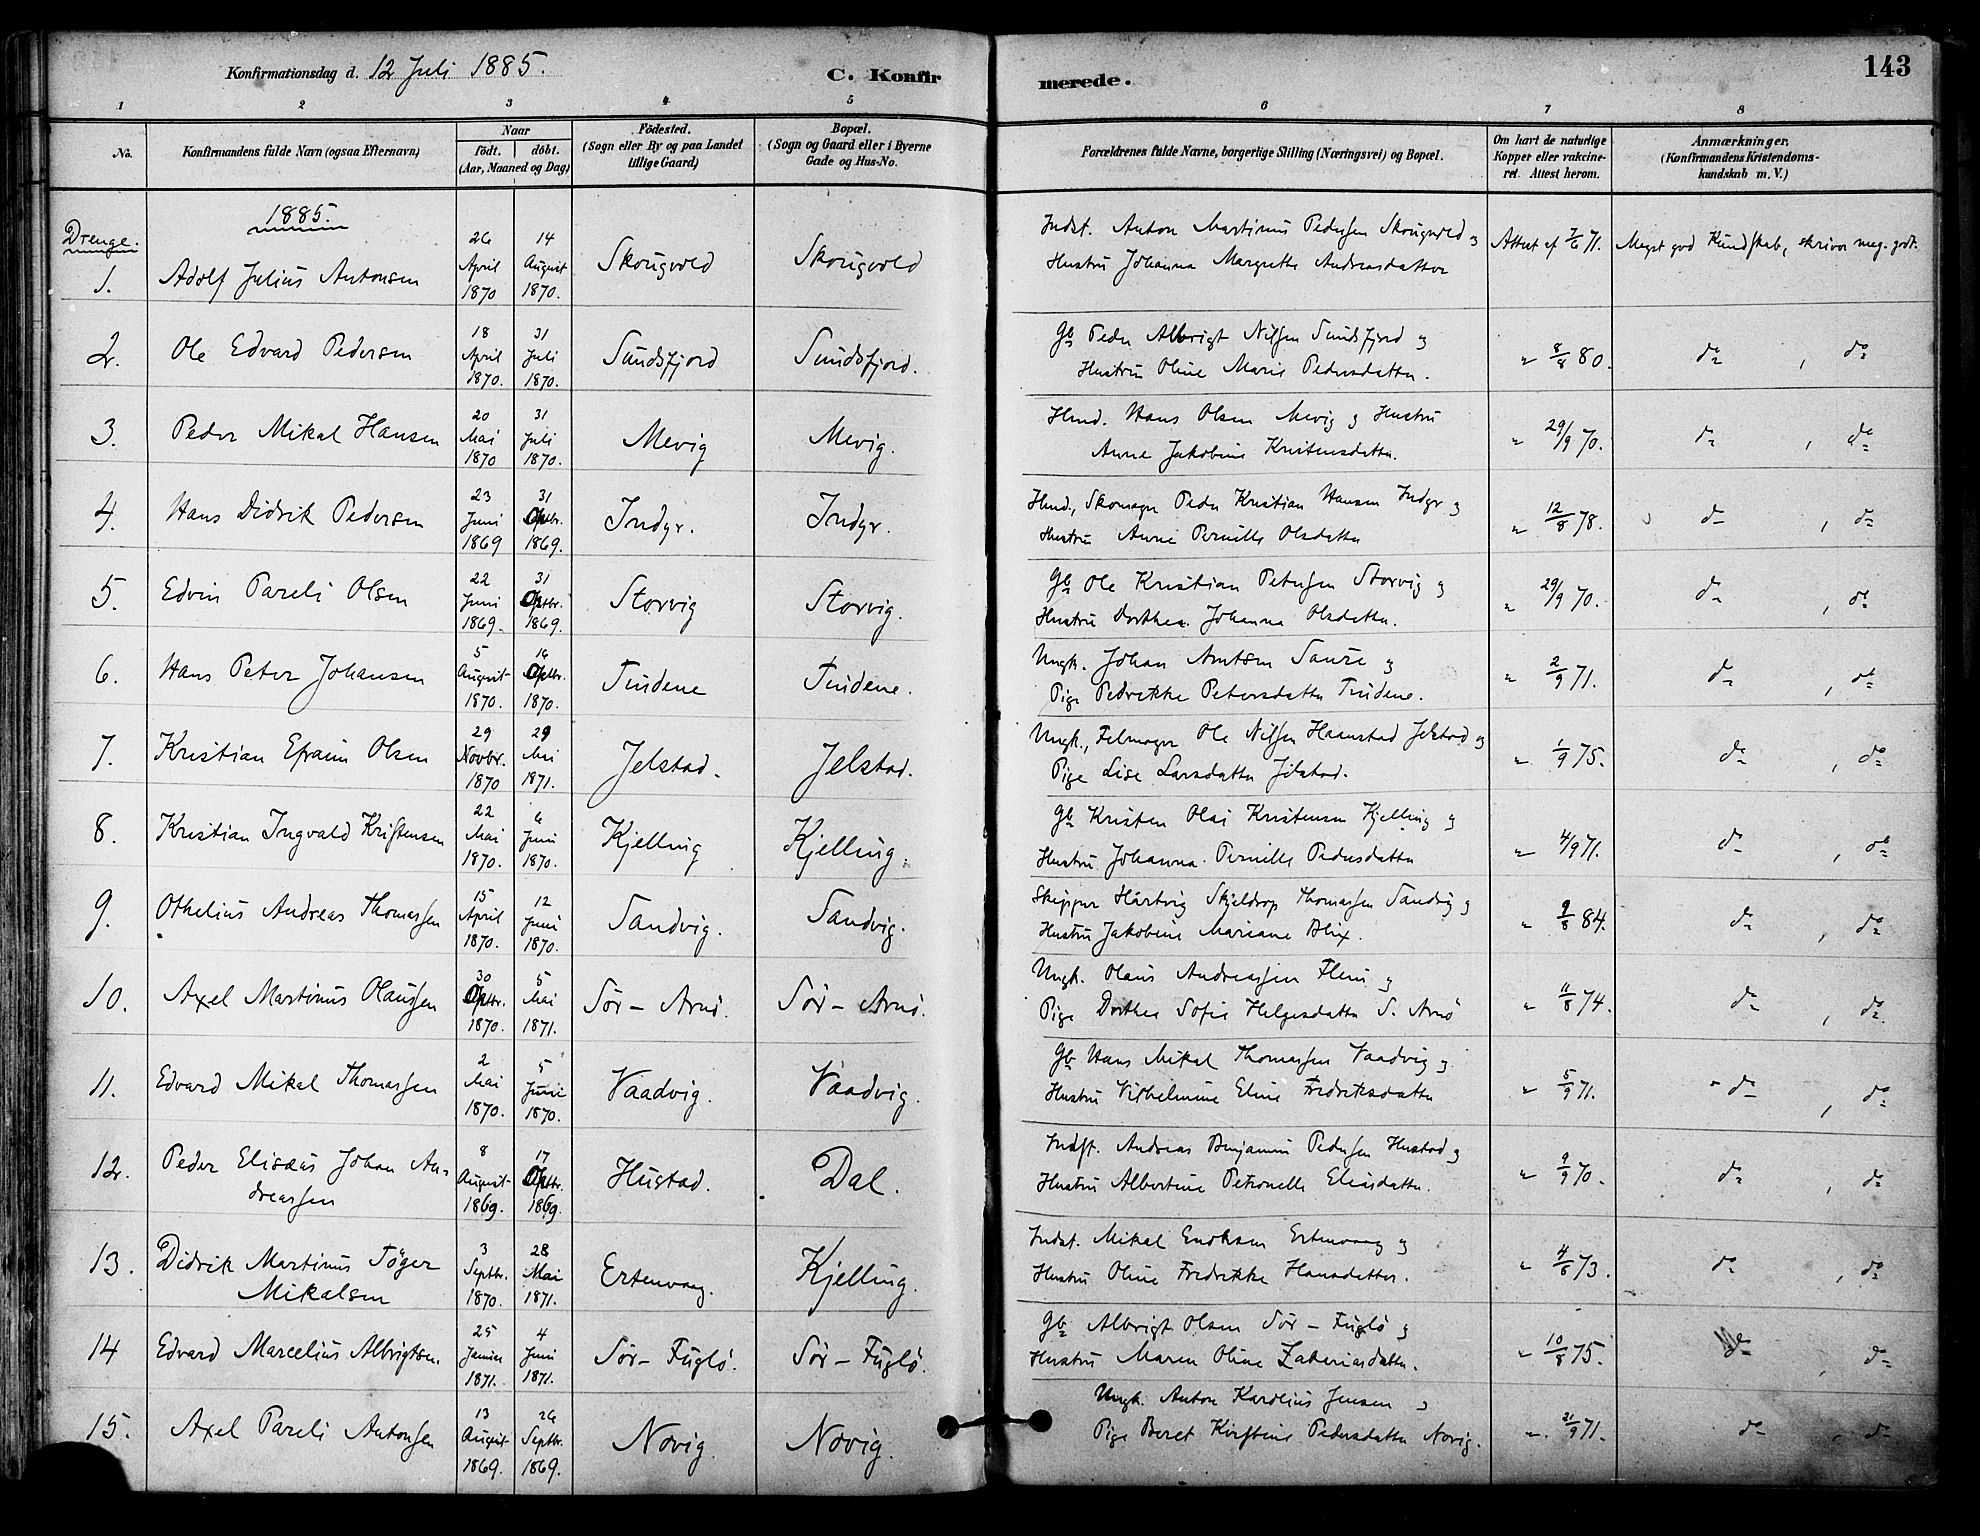 Konfirmationsdag d. 12 Juli 1885.
C. Konfirmerede.
143
1 2 3 4 5 6 7 8
No.
Konfirmandens fulde Navn (ogsaa Efternavn)
Naar
födt. döbt.
(Aar, Maaned og Dag)
Födested.
(Sogn eller By og paa Landet
tillige Gaard)
Bopæl.
(Sogn og Gaard eller i Byerne
Gade og Hus-No.
Forældrenes fulde Navne, borgerlige Stilling (Næringsvei) og Bopæl.
Om havt de naturlige
Kopper eller vakcine-
ret. Attest herom.
Anmærkninger.
(Konfirmandens Kristendoms-
kundskab m. V.)
1885.
Drenge.
1. Adolf Julius Antonsen
26 April 1870
14 August 1870.
Skougvold
Skougvold
Indst. Anton Martinus Pedersen Skougvold og
Hustru Johanna Margrethe Andreasdatter
Attest af 7/6 71.
Meget god Kundskab, skriver meg. godt.
2. Ole Edvard Pedersen
18 April 1870.
31 Juli 1870.
Sundsfjord
Sundsfjord.
Gb Peder Albrigt Nilsen Sundsfjord og
Hustru Oline Marie Pedersdatter.
" 8/8 80.
do , do
3. Peder Mikal Hansen
20 Mai 1870
31 Juli 1870.
Mevig
Mevig.
Hmd. Hans Olsen Mevig og Hustru
Anne Jakobine Kristensdatter.
" 29/9 70.
do , do
4. Hans Didrik Pedersen
23 Juni 1869
31 Oktbr. 1869.
Indyr.
Indyr.
Hmd., Skomager Peder Kristian Hansen Indyr og
Hustru Anne Pernille Olsdatter
" 12/8 78.
do , do
5. Edvin Pareli Olsen
22 Juni 1869.
31 Oktbr. 1869.
Storvig
Storvig.
Gb Ole Kristian Petersen Storvig og
Hustru Dorthea Johanna Olsdatter.
" 29/9 70.
do , do
6. Hans Peter Johansen
5 August 1870.
16 Oktbr. 1870.
Tindene
Tindene.
Ungk. Johan Arntsen Saure og
Pige Pedrikke Petersdatter Tindene.
" 2/9 71.
do , do
7. Kristian Efraim Olsen
29 Novbr. 1870
29 Mai 1871.
Jelstad.
Jelstad.
Ungk., Felmager Ole Nilsen Haanstad Jelstad og
Pige Lise Larsdatter Jelstad.
" 1/9 75.
do , do
8. Kristian Ingvald Kristensen
22 Mai 1870.
6 Juni 1870.
Kjelling
Kjelling.
Gb Kristen Olai Kristensen Kjelling og
Hustru Johanna Pernille Pedersdatter
" 4/9 71.
do , do
9. Othelius Andreas Thomassen
15 April 1870.
12 Juni 1870.
Sandvig.
Sandvig.
Skipper Hartvig Skjeldrop Thomassen Sandvig og
Hustru Jakobine Mariane Blix.
" 9/8 84.
do , do
10. Axel Martinus Olaussen
30 Oktbr. 1870.
5 Mai 1871.
Sör-Arnö.
Sör-Arnö.
Ungk. Olaus Andreassen Flein og
Pige Dorthea Sofie Helgesdatter S. Arnö
" 11/8 74.
do , do
11. Edvard Mikal Thomassen
2 Mai 1870.
5 Juni 1870.
Vaadvig.
Vaadvig.
Gb Hans Mikal Thomassen Vaadvig og
Hustru Vilhelmine Eline Fredriksdatter
" 5/9 71.
do , do
12. Peder Elisæus Johan An-
dreassen
8 August 1869.
17 Oktbr. 1869.
Hustad.
Dal.
Indst. Andreas Benjamin Pedersen Hustad og
Hustru Albertine Petronelle Eliasdatter.
" 9/9 70.
do , do
13. Didrik Martinus Töger
Mikalsen
3 Septbr. 1870.
28 Mai 1871.
Ertenvaag.
Kjelling.
Indst. Mikal Eriksen Ertenvaag og
Hustru Oline Fredrikke Hansdatter.
" 4/8 73.
do , do
14 Edvard Marcelius Albrigtsen.
25 Januar 1871.
4 Juni 1871.
Sör-Fuglö.
Sör-Fuglö.
Gb Albrigt Olsen Sör-Fuglö og
Hustru Maren Oline Zakariasdatter.
" 10/8 75.
do , do
15. Axel Pareli Antonsen
13 August 1869.
26 Septbr. 1869.
Novig.
Novig.
Ungk. Anton Karolius Jensen og
Pige Beret Kirstine Pedersdatter Novig.
" 21/9 71.
do , do